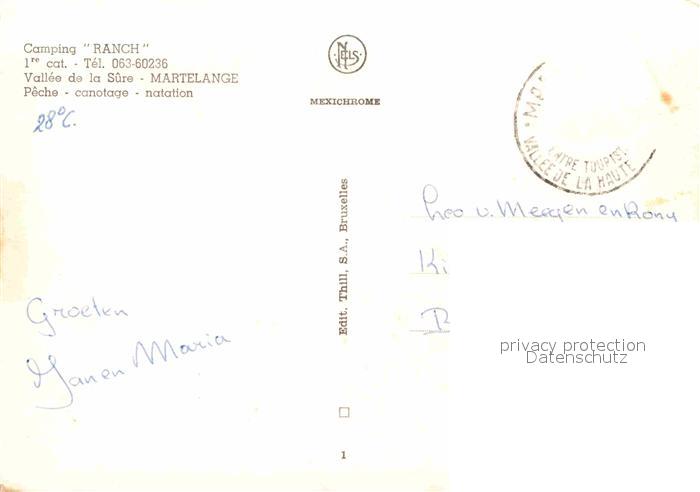 Camping "RANCH"
1re cat. - Tél. 063-60236
Vallée de la Sûre - MARTELANGE
Pêche - canotage - natation
28°C.
NELS
MEXICHROME
CENTRE TOURIST
VALLÉE DE LA HAUTE
Edit. Thill, S.A., Bruxelles
v. Meegen en Rony
Ki
Groeten
Jan en Maria
privacy protection
Datenschutz
1